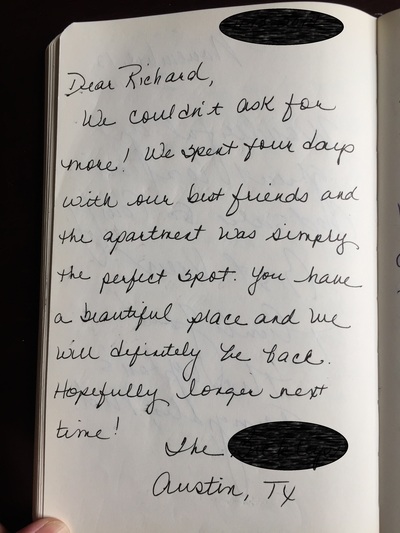 Dear Richard,
We couldn't ask for
more! We spent four days
with our best friends and
the apartment was simply
the perfect spot. You have
a beautiful place and we
will definitely be back.
Hopefully longer next
time!
The
Austin, TX